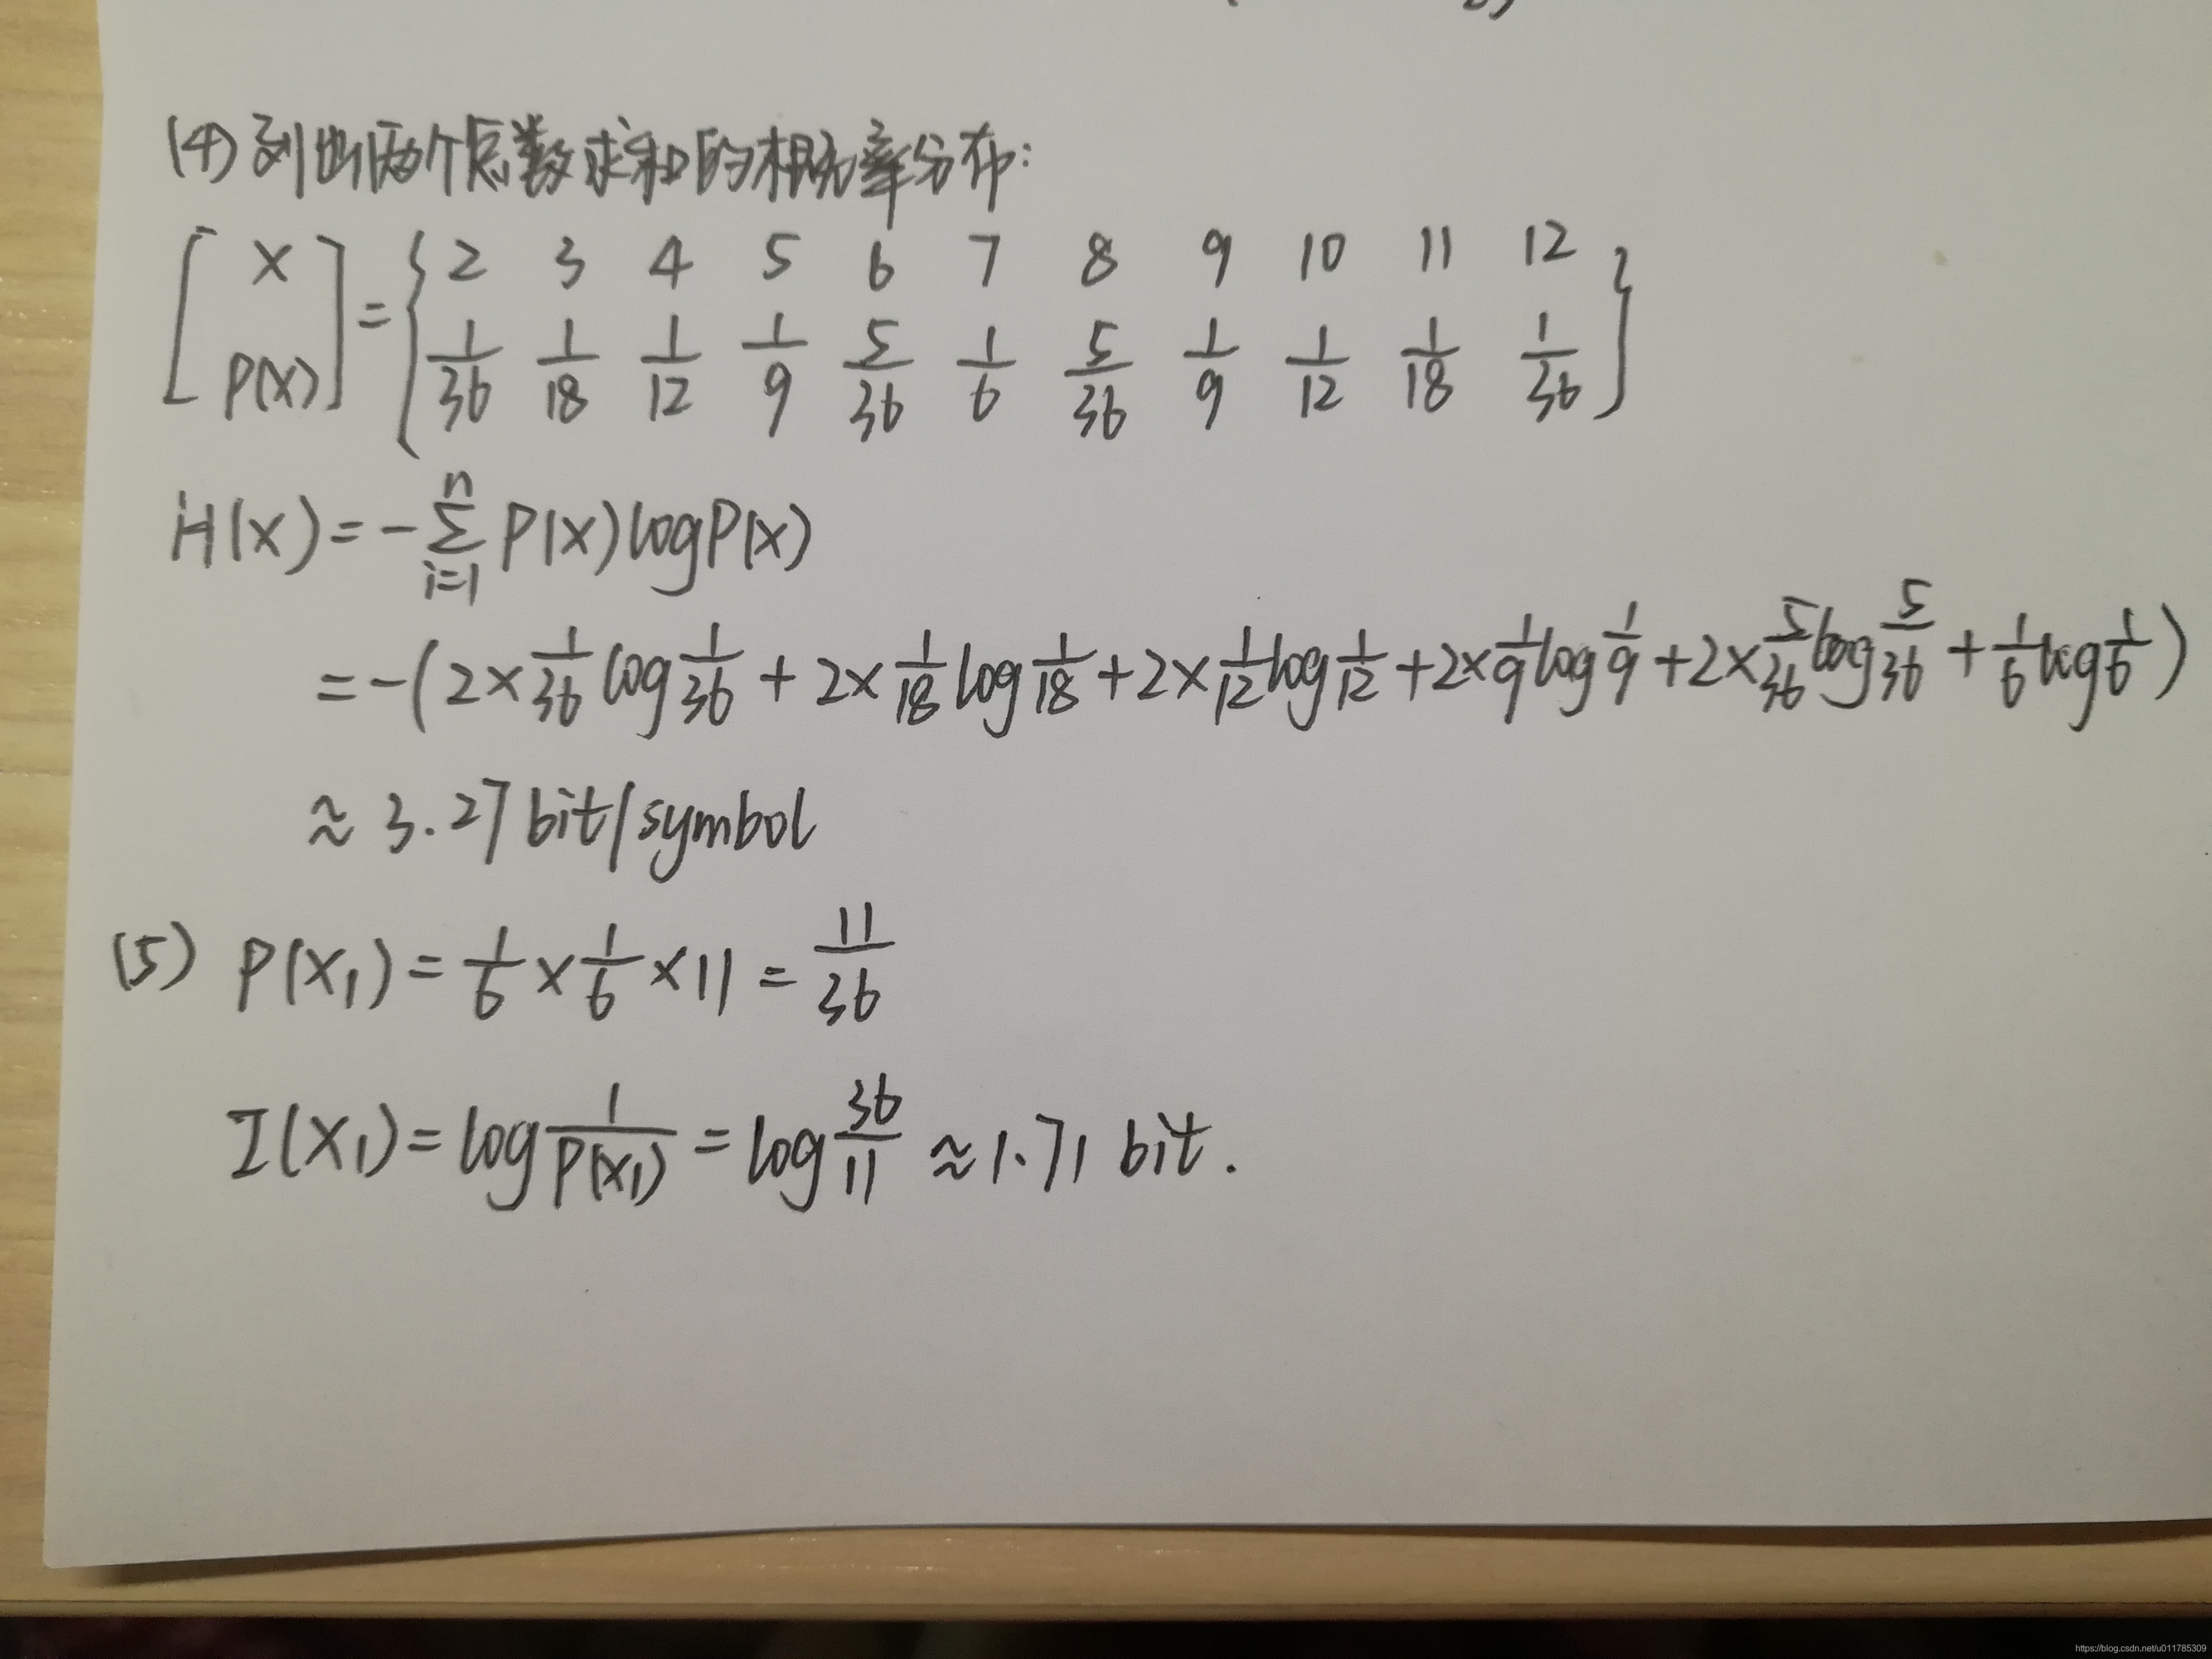 (4) 列出两个点数求和的概率分布:
[X P(X)] = { 2 3 4 5 6 7 8 9 10 11 12
1/36 1/18 1/12 1/9 5/36 1/6 5/36 1/9 1/12 1/18 1/36 }
H(X) = -∑_{i=1}^{n} P(X) log P(X)
= -(2×1/36 log 1/36 + 2×1/18 log 1/18 + 2×1/12 log 1/12 + 2×1/9 log 1/9 + 2×5/36 log 5/36 + 1/6 log 1/6)
≈ 3.27 bit/symbol
(5) P(X₁) = 1/6 × 1/6 × 11 = 11/36
I(X₁) = log 1/P(X₁) = log 36/11 ≈ 1.71 bit.
https://blog.csdn.net/u011785309